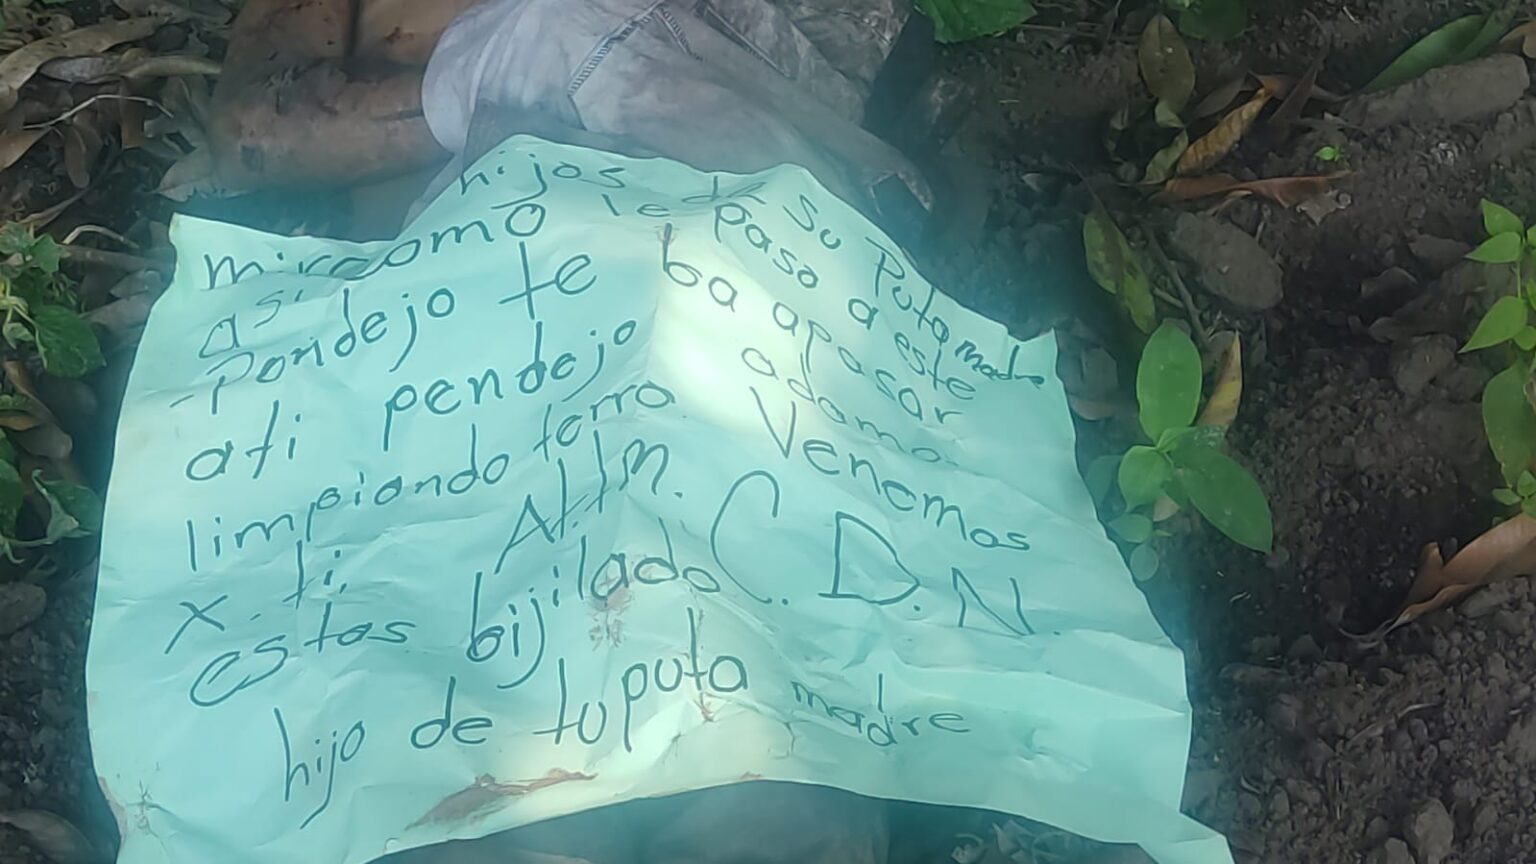 hijos de su Puta madre
mira como le paso a este
asi pendejo te ba apasar
-Pondejo
ati pendejo adamo
limpiando terra Venemos
x. ti. At.tm. C.D.N.
estas bijilado
hijo de tu puta madre